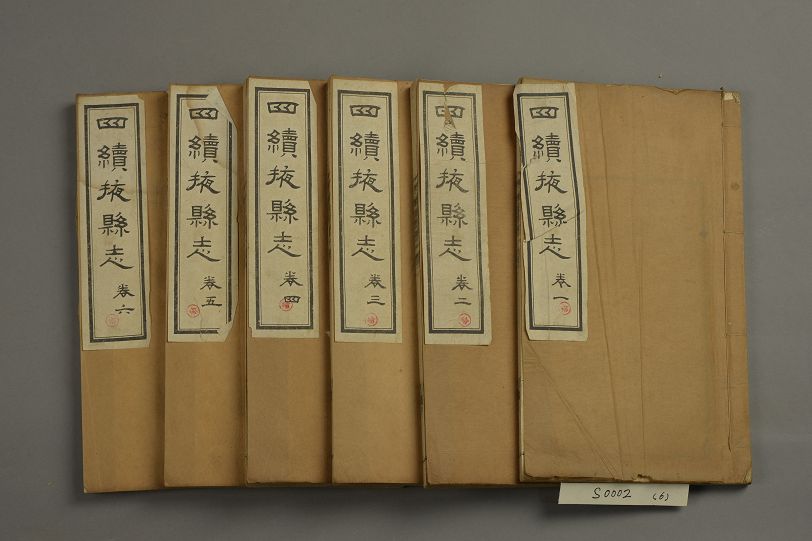 四續掖縣志 卷一
四續掖縣志 卷二
四續掖縣志 卷三
四續掖縣志 卷四
四續掖縣志 卷五
四續掖縣志 卷六
S0002 (6)